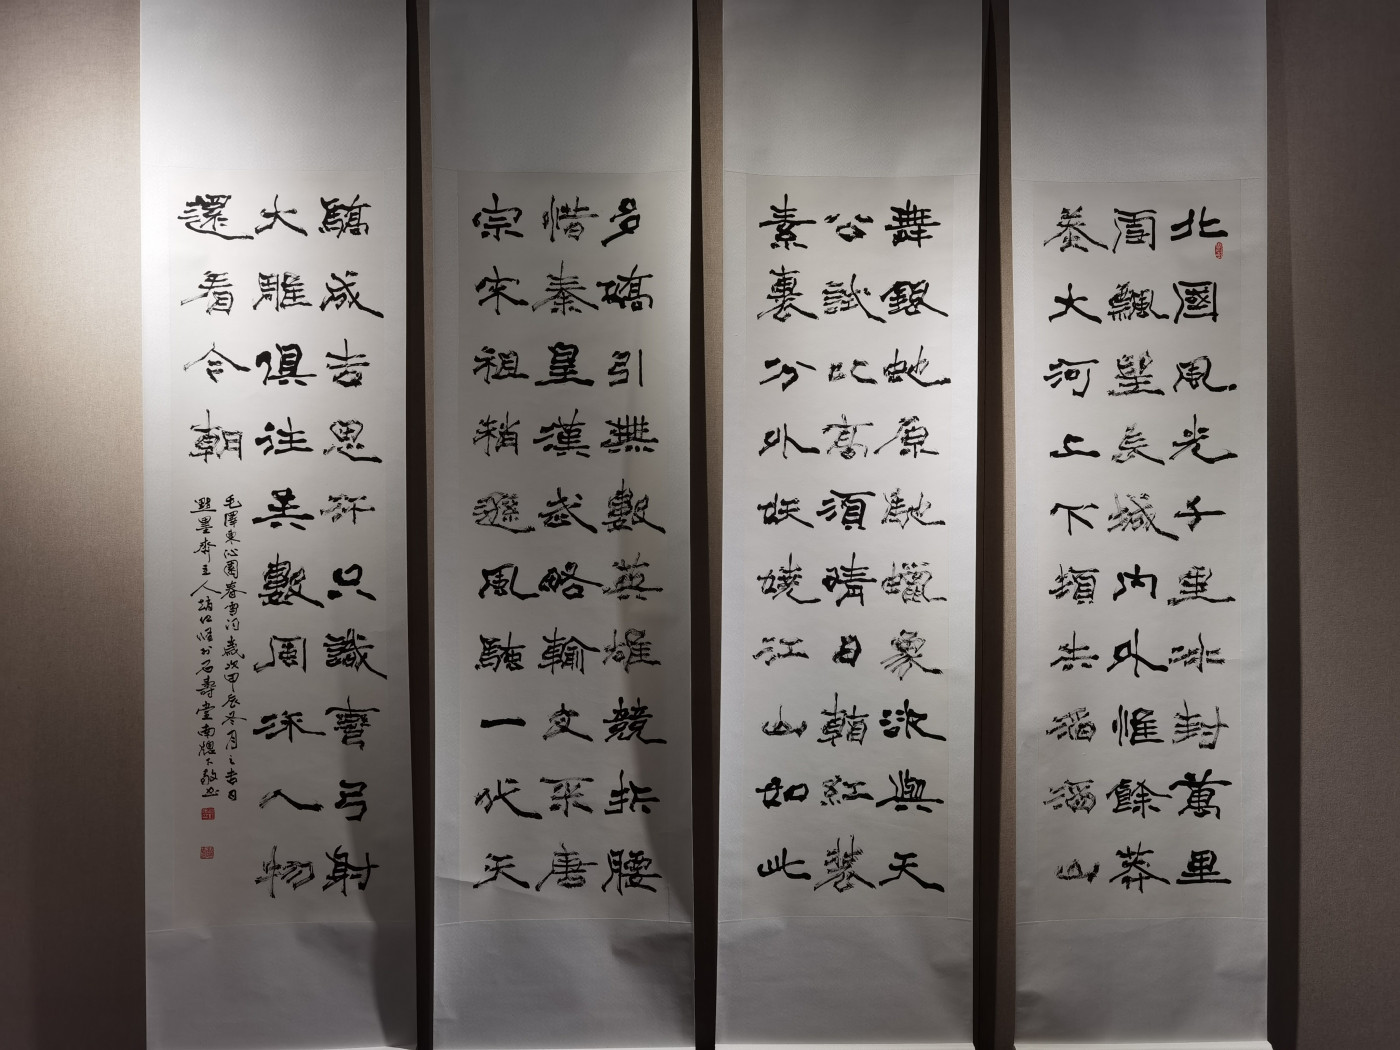 北國風光千里冰封萬里
雪飄望長城內外惟餘莽
莽大河上下頓失滔滔山
舞銀蛇原馳蠟象欲與天
公試比高須晴日看紅裝
素裹分外妖嬈江山如此
多嬌引無數英雄競折腰
惜秦皇漢武略輸文采唐
宗宋祖稍遜風騷一代天
驕成吉思汗只識彎弓射
大雕俱往矣數風流人物
還看今朝
毛澤東沁園春雪詞歲次甲辰冬月之吉日
點墨齋主人於石壽堂南窗下敬書